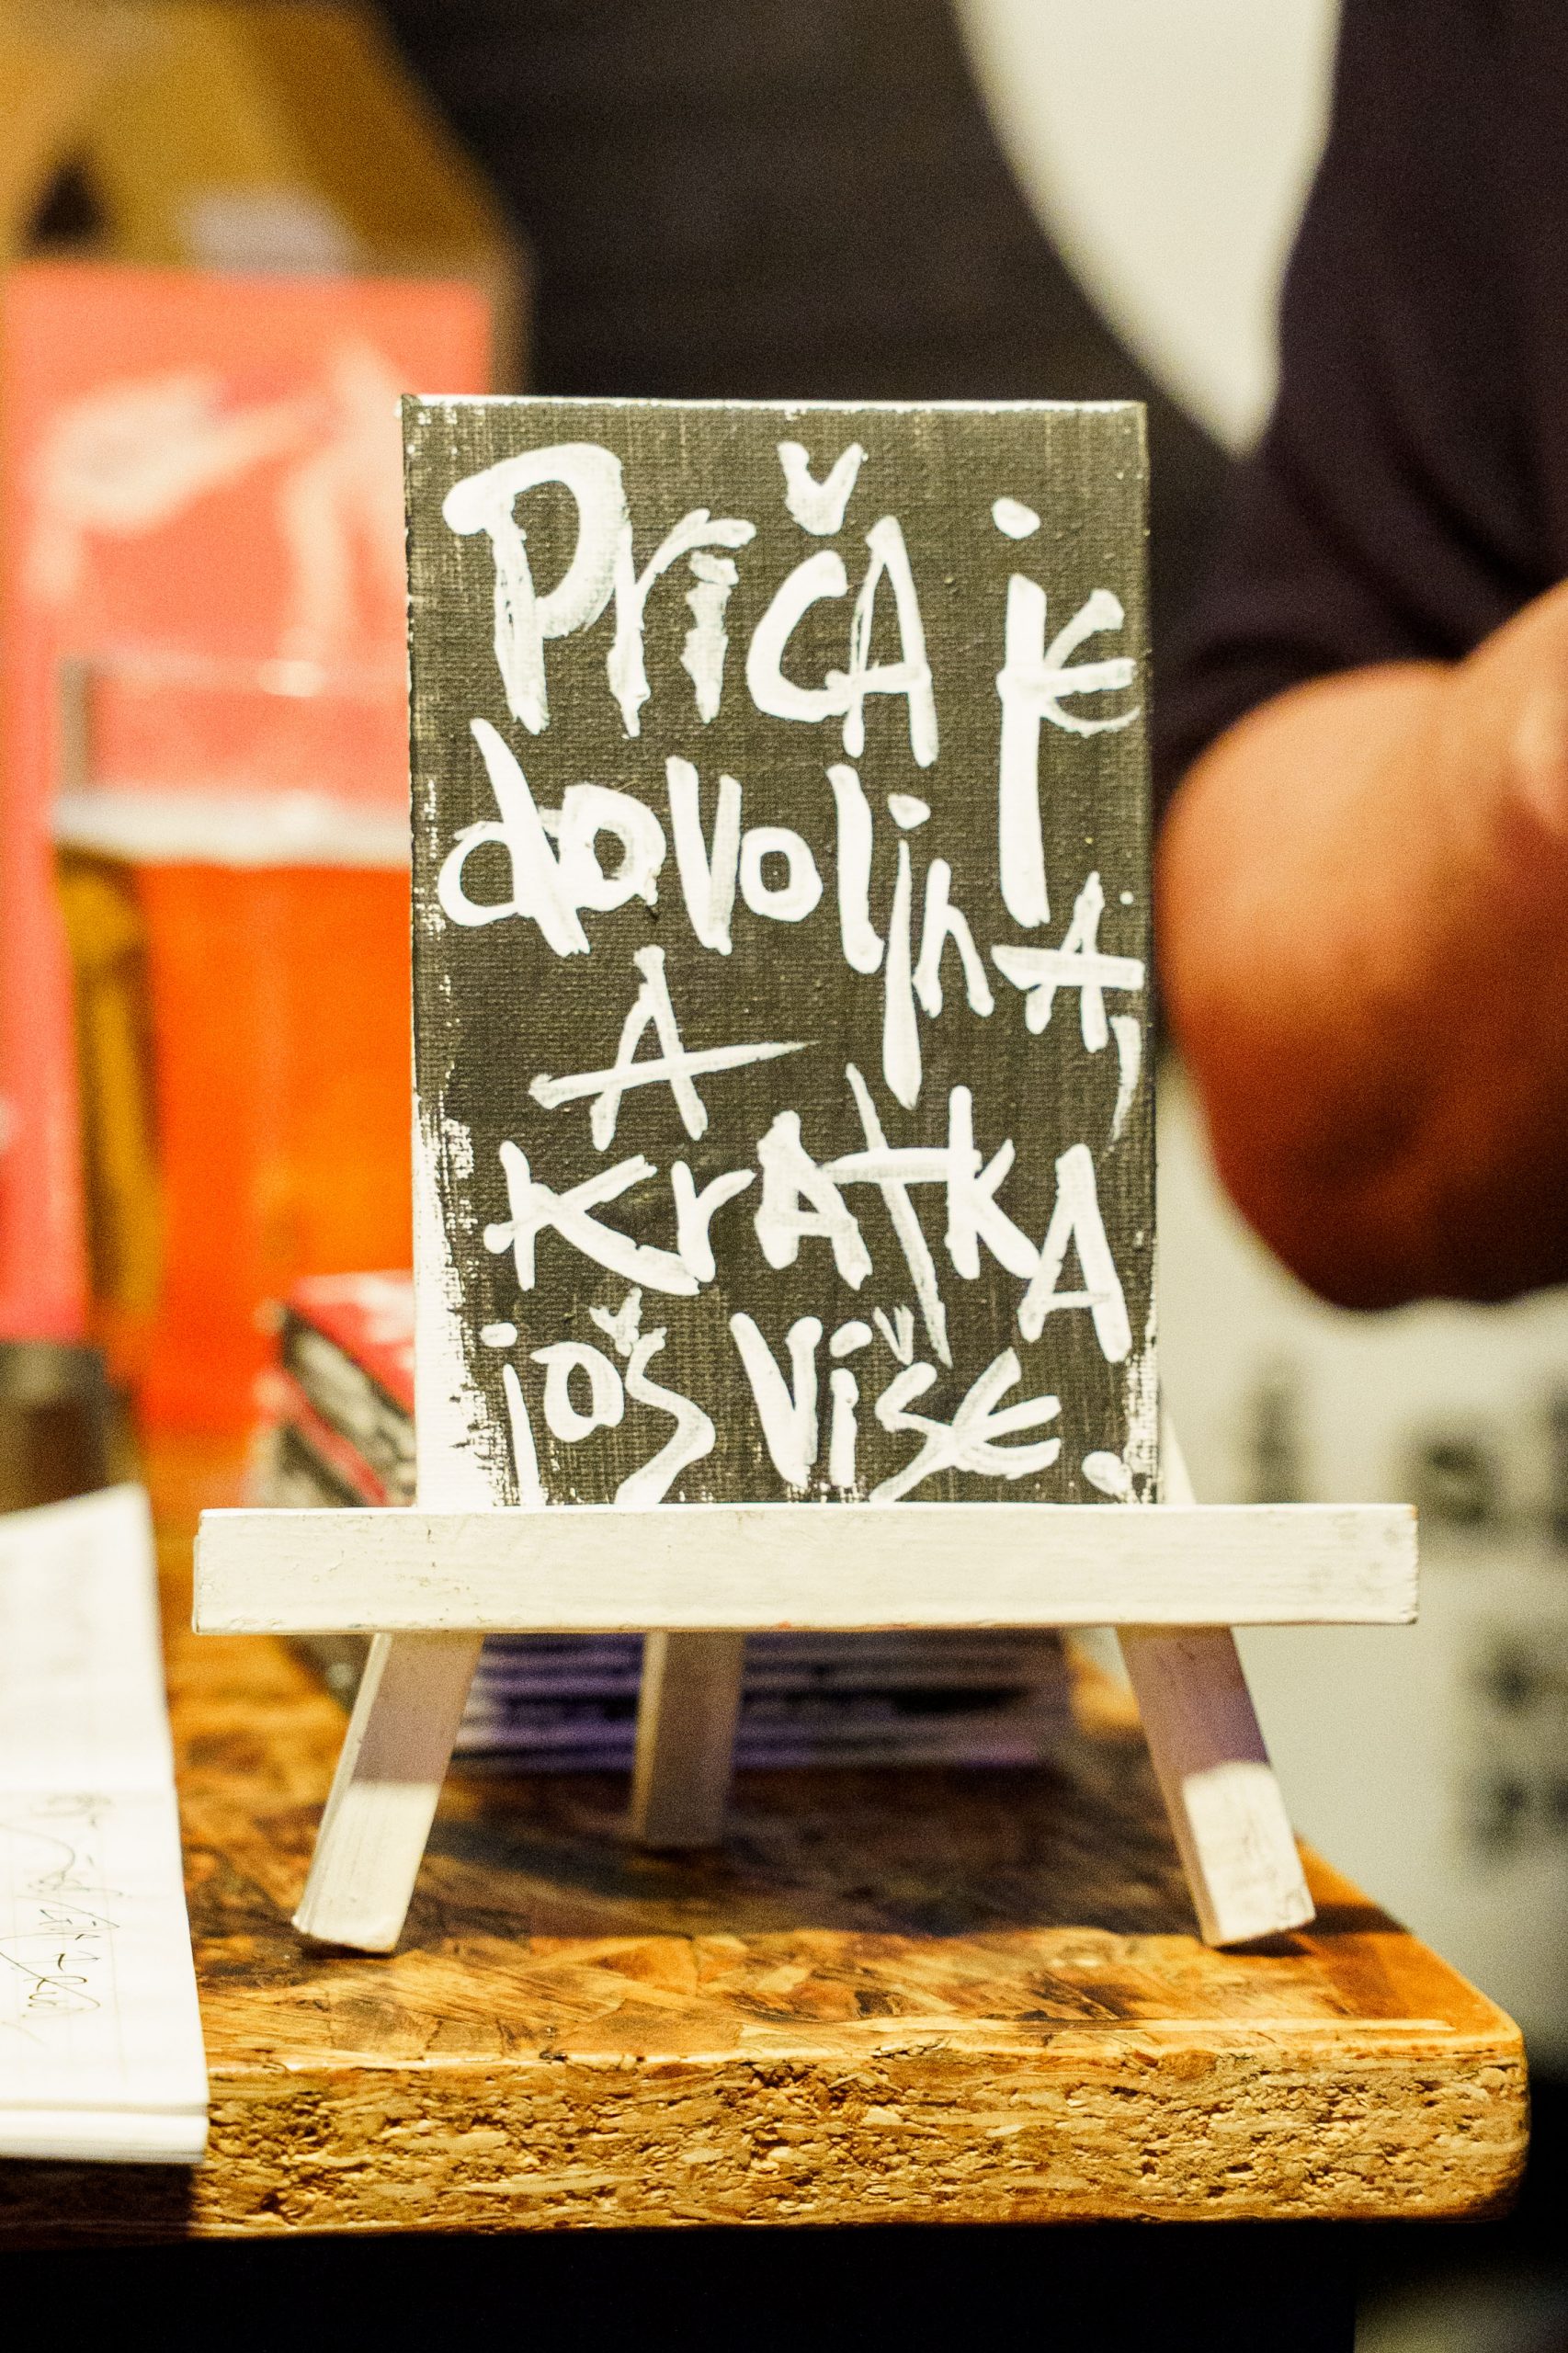 Priča je
dovoljna,
A
kratka
još više.